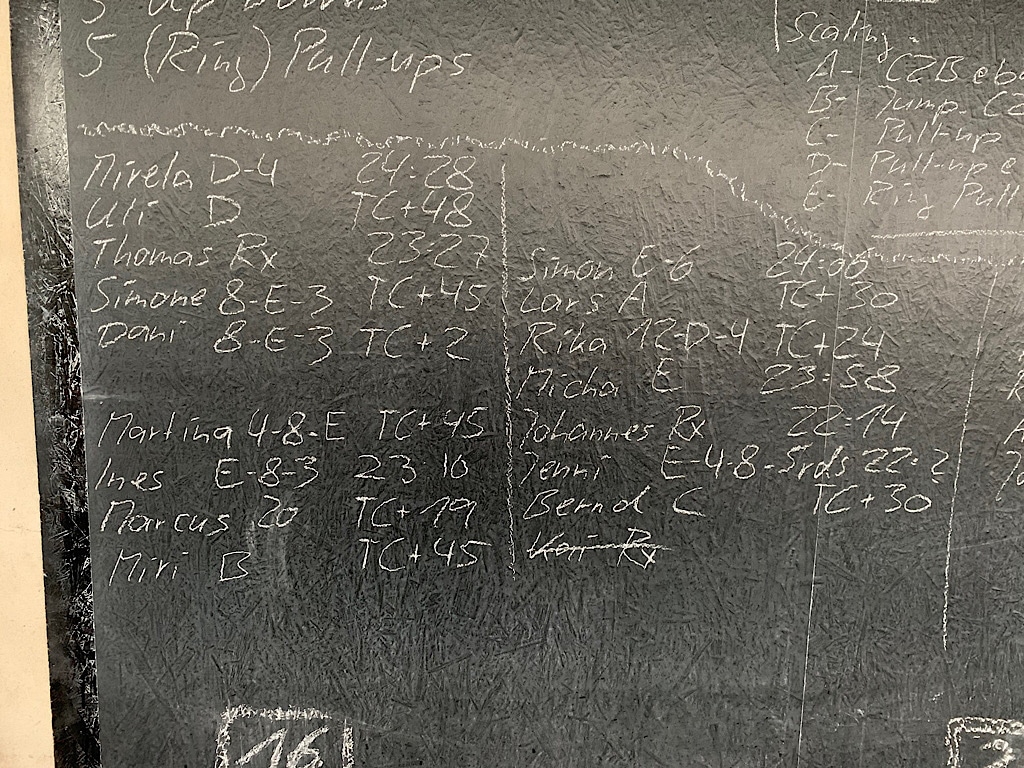 5 Up Downs
5 (Ring) Pull-ups
Mirela D-4 24:28
Uli D TC+48
Thomas Rx 23:27
Simone 8-E-3 TC+45
Dani 8-E-3 TC+2
Martina 4-8-E TC+45
Ines E-8-3 23:10
Marcus 20 TC+19
Miri B TC+45
Simon E-6 24:06
Lars A TC+30
Rika 12-D-4 TC+24
Micha E 23:58
Johannes Rx 22:14
Jenni E-4-8-5rds 22:?
Bernd C TC+30
Rx
Scaling:
A-
B- Jump.
C- Pull-up
D- Pull-up
E- Ring Pull
16